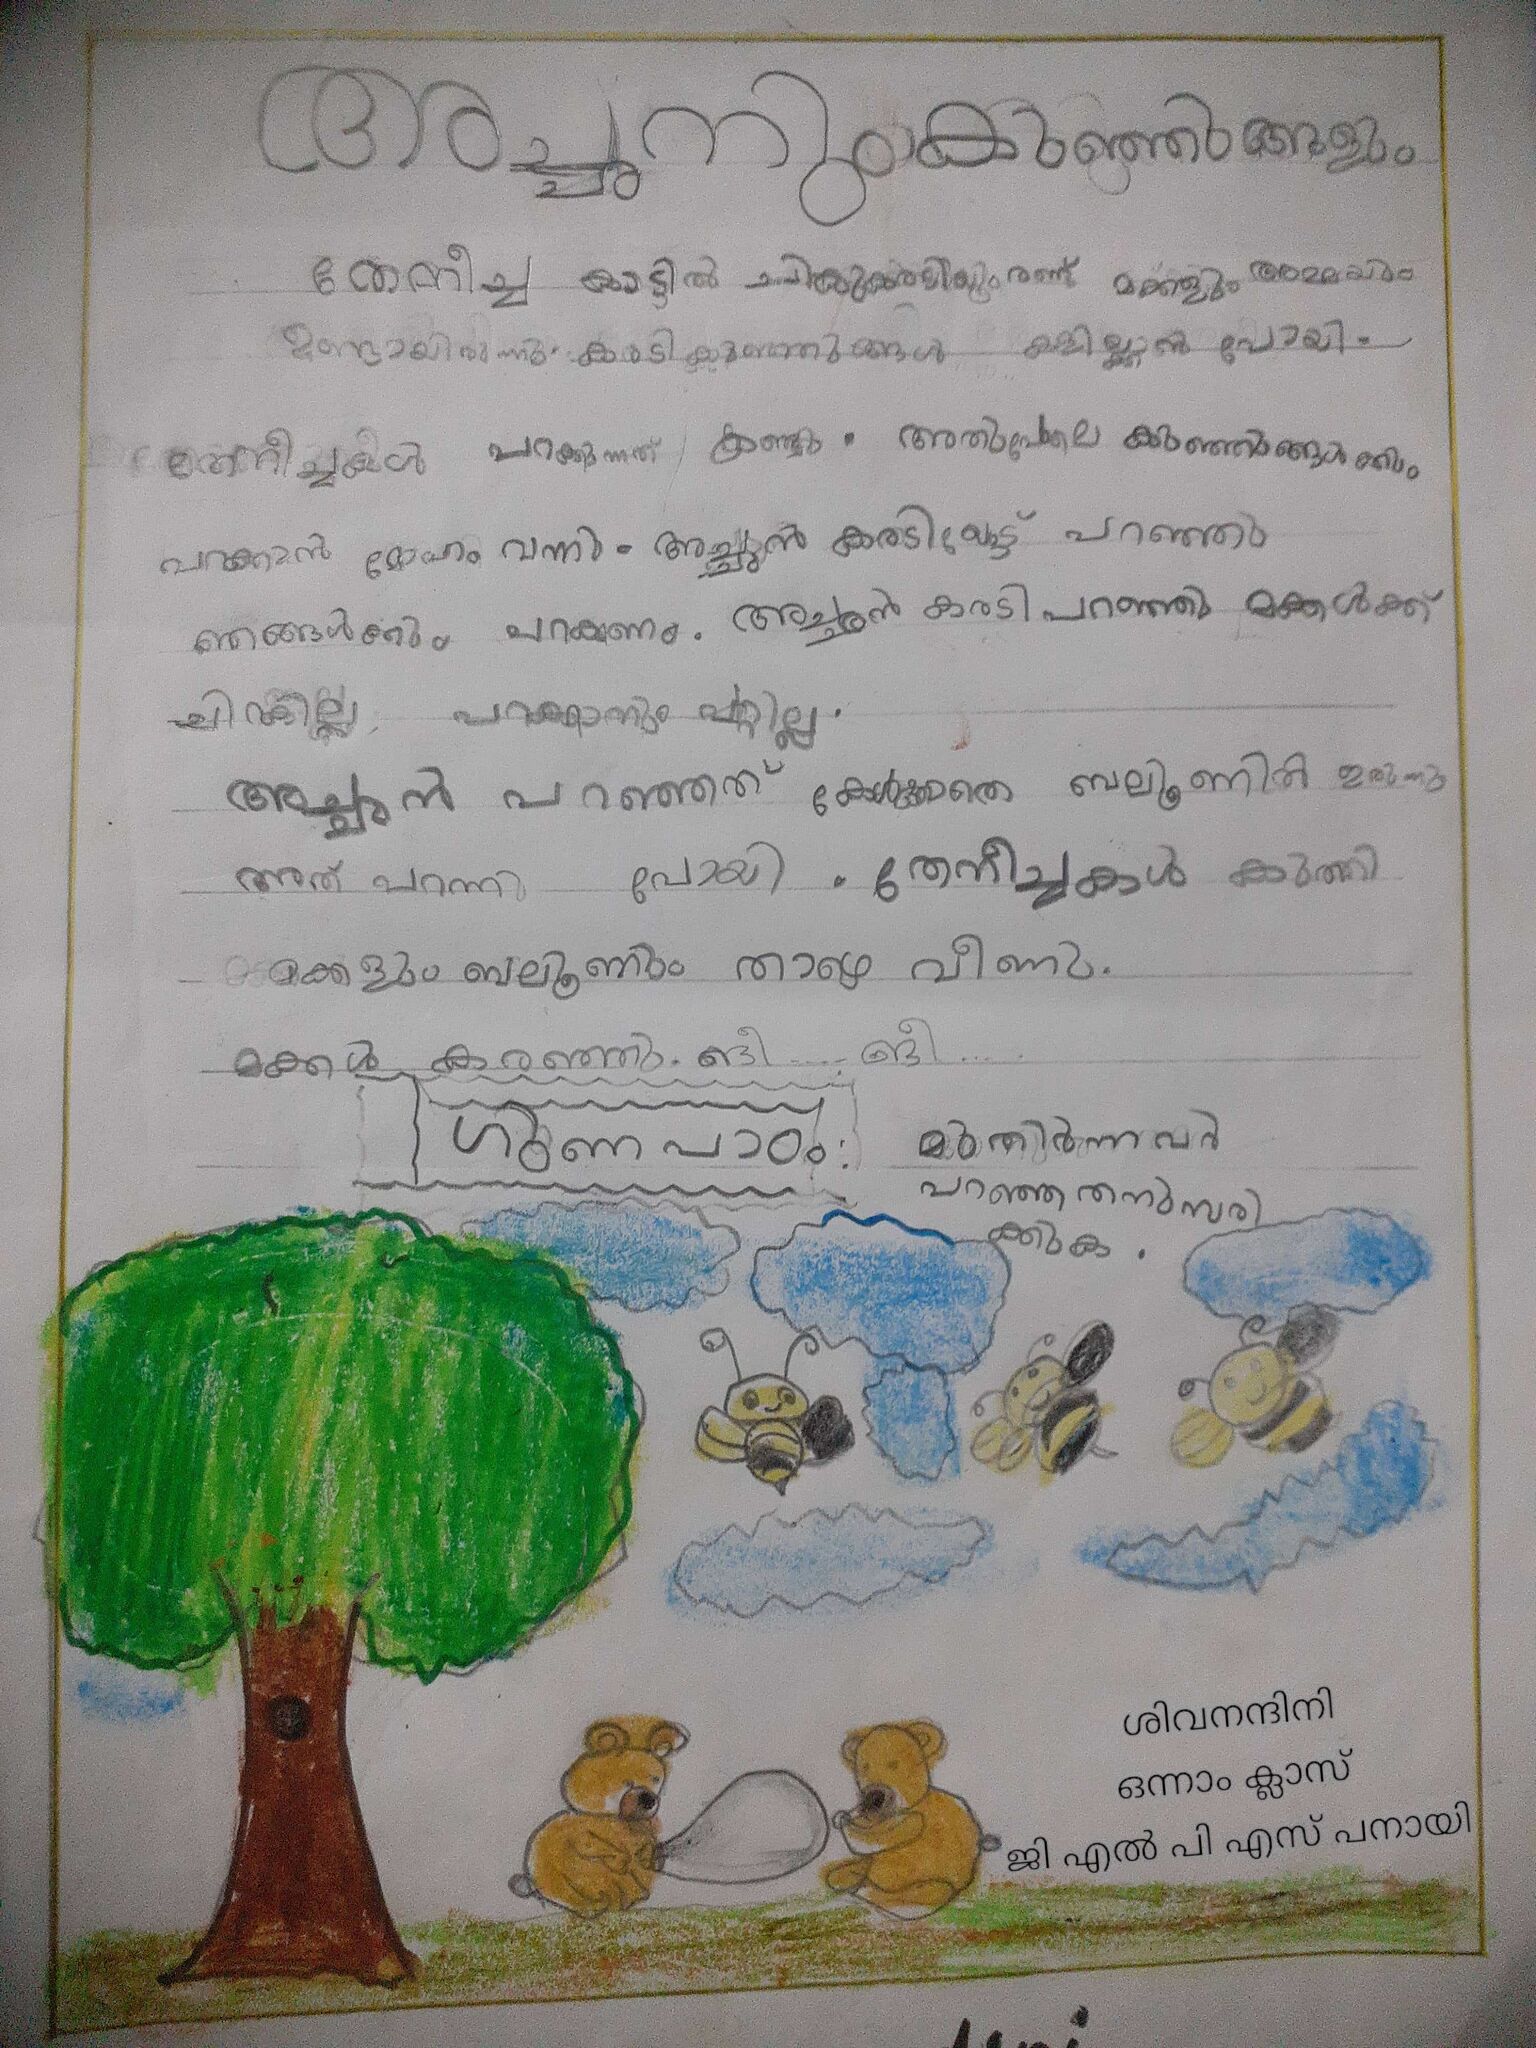 അച്ചനും കുഞ്ഞുങ്ങളും
തേനീച്ച കാട്ടിൽ രണ്ട് മക്കളും അമ്മയും
ഉണ്ടായിരുന്നു. കരടി കുഞ്ഞുങ്ങൾ കളിക്കാൻ പോയി.
തേനീച്ചകൾ പറക്കുന്നത് കണ്ടു. അതുപോലെ കുഞ്ഞുങ്ങൾക്കും
പറക്കാൻ മോഹം വന്നു. അച്ചൻ കരടിയോട് പറഞ്ഞു
ഞങ്ങൾക്കും പറക്കണം. അച്ചൻ കരടി പറഞ്ഞു മക്കൾക്ക്
ചിറകില്ല പറക്കാനും പറ്റില്ല.
അച്ചൻ പറഞ്ഞത് കേൾക്കാതെ ബലൂണിൽ ഇരുന്നു
അത് പറന്നു പോയി. തേനീച്ചകൾ കുത്തി
മക്കളും ബലൂണും താഴെ വീണു.
മക്കൾ കരഞ്ഞു. ങീ .... ങീ ....
ഗുണപാഠം: മുതിർന്നവർ
പറഞ്ഞതനുസരി
ക്കുക.
ശിവനന്ദിനി
ഒന്നാം ക്ലാസ്
ജി എൽ പി എസ് പനായി